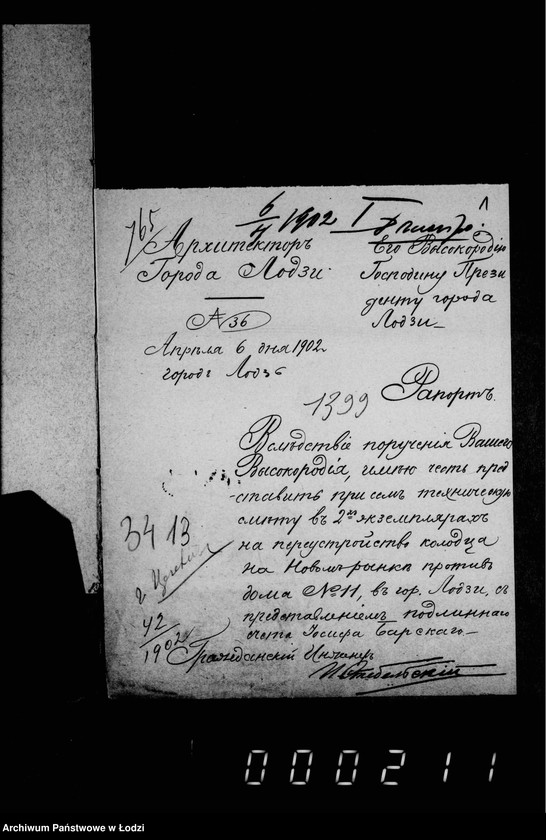 765
6/4 1902 I
1
Архитекторъ
Города Лодзи.
№ 36
Апрѣля 6 дня 1902
городъ Лодзь
Его Высокородію
Господину Прези
денту города
Лодзи
1399
Рапортъ.
Вслѣдствіе порученія Вашего
Высокородія, имѣю честь пред
-ставить при семъ техническую
смѣту въ 2хъ экземплярахъ
на переустройство колодца
на Новомъ рынкѣ противъ
дома № 11, въ гор. Лодзи, съ
представленіемъ подлиннаго
счета Іосифа Барскаго.
3413
42
1902
Гражданскій Инженеръ
000211
Archiwum Państwowe w Łodzi